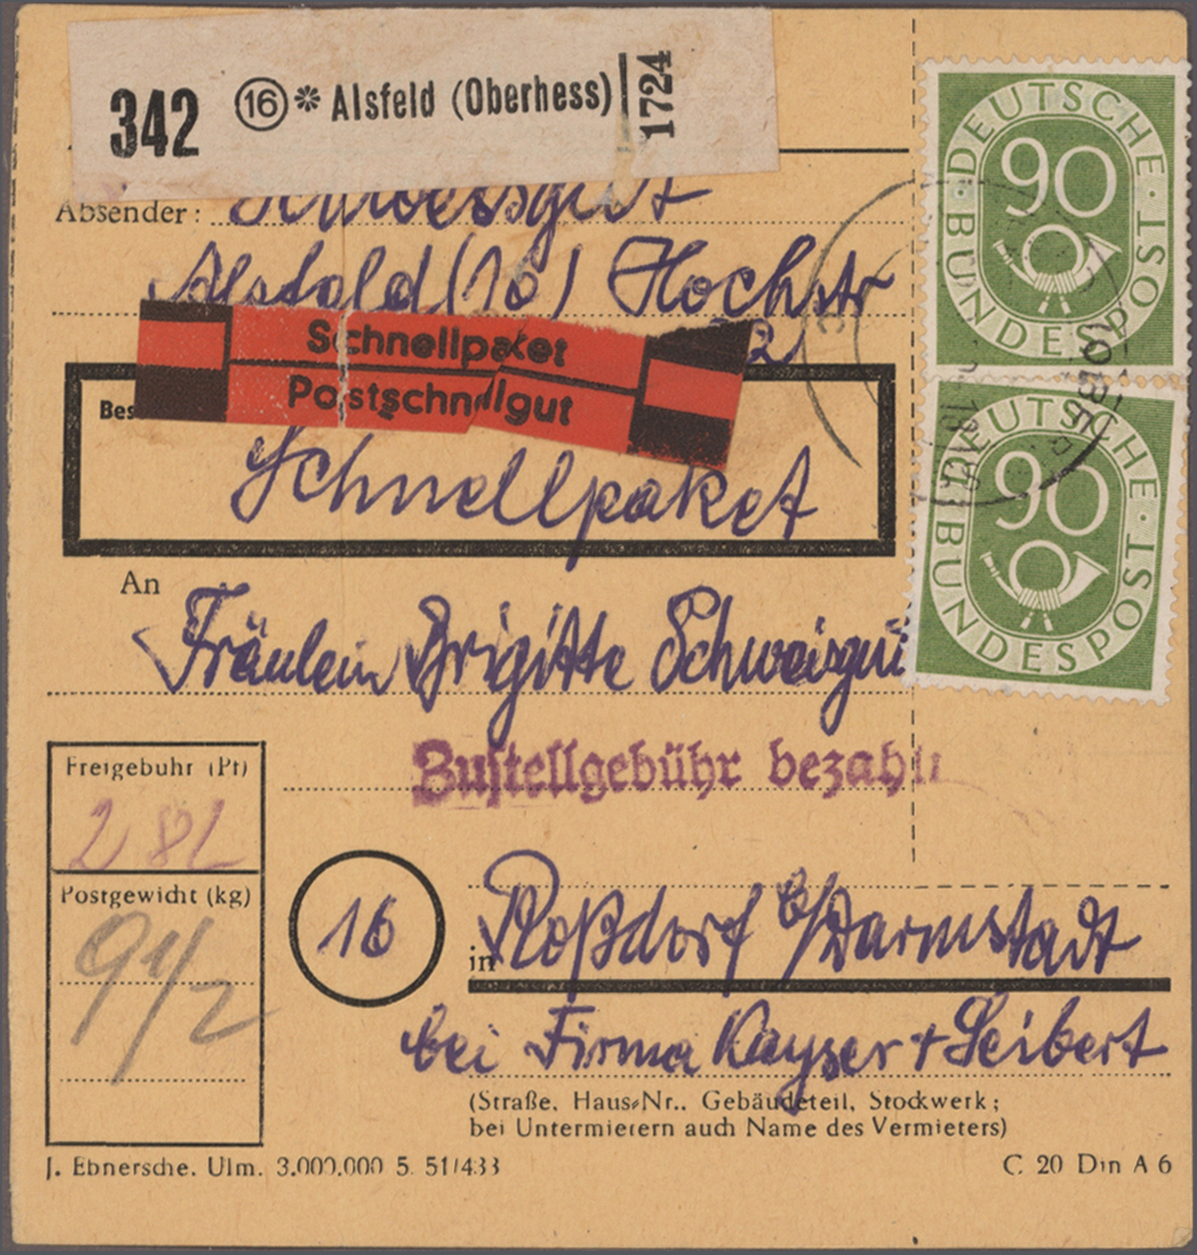 342 (16) * Alsfeld (Oberhess) 1724
Absender: Schweisgut
Alsfeld (16) Hochstr
2
Schnellpaket
Postschnellgut
Bes
Schnellpaket
An
Fräulein Brigitte Schweisgut
Zustellgebühr bezahlt
Freigebühr (Pf)
282
Postgewicht (kg)
9 1/2
16
in Roßdorf b/Darmstadt
bei Firma Kayser + Seibert
(Straße, Haus-Nr., Gebäudeteil, Stockwerk;
bei Untermietern auch Name des Vermieters)
J. Ebnersche, Ulm. 3.000.000 5. 51/433
C 20 Din A 6
DEUTSCHE BUNDESPOST
90
DEUTSCHE BUNDESPOST
90